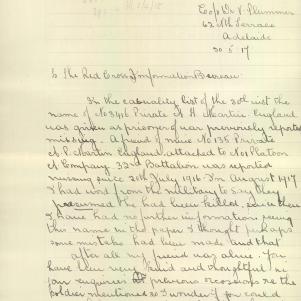 C/o Dr V. Plummer
62 Nth Terrace
Adelaide
30.5.17
To The Red Cross Information Bureau:
In the casualty list of the 30th inst the
name of No 3496 Private A. H. Martin. England
was given as prisoner of war previously reported
missing. A friend of mine No 135 Private
A. P. Martin. England, attached to No 1 Platoon
A Company. 32nd Battalion was reported
missing since 20th July 1916. In August 1917
I had word from the military to say they
presumed he had been killed, since then
I have had no further information seeing
this name in the paper I thought perhaps
some mistake had been made and that
after all my friend was alive. You
have been very kind and thoughtful in
enquiries on previous occasions re the
soldier mentioned so I wonder if you could